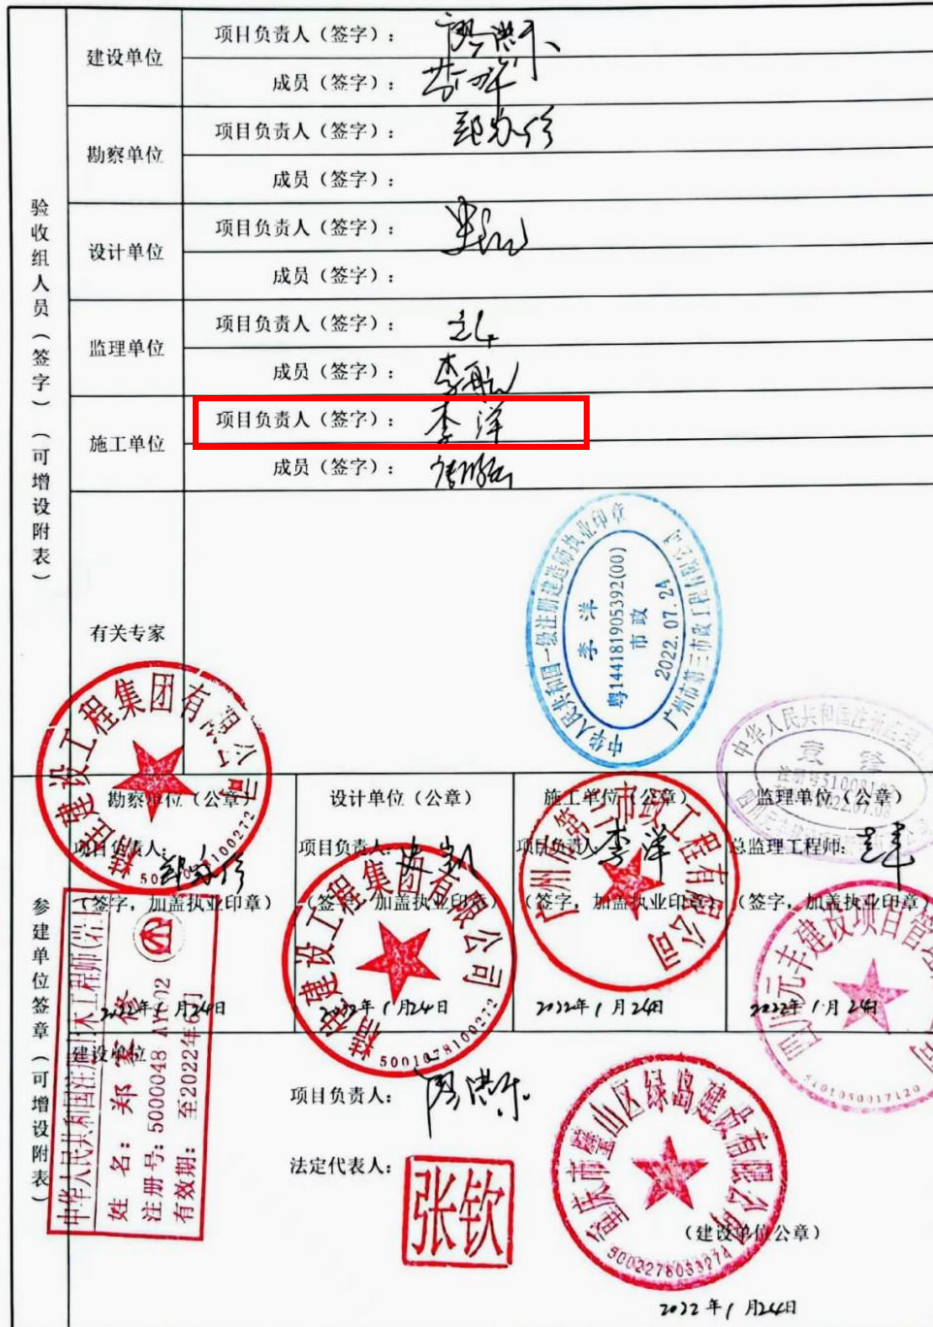 验收组人员（签字）（可增设附表）
建设单位
项目负责人（签字）：廖洪乐
成员（签字）：
勘察单位
项目负责人（签字）：郑家修
成员（签字）：
设计单位
项目负责人（签字）：
成员（签字）：
监理单位
项目负责人（签字）：
成员（签字）：李航
施工单位
项目负责人（签字）：李洋
成员（签字）：
有关专家
中华人民共和国一级注册建造师执业印章
李 洋
粤144181905392(00)
市政
2022.07.24
广州市第三市政工程有限公司
中华人民共和国注册监理
袁 锋
参建单位签章（可增设附表）
勘察单位（公章）
项目负责人：郑家修
（签字，加盖执业印章）
2022年1月24日
建设工程集团有限公司
5001078100272
设计单位（公章）
项目负责人：
（签字，加盖执业印章）
2022年1月24日
建设工程集团有限公司
5001078100272
施工单位（公章）
项目负责人：李洋
（签字，加盖执业印章）
2022年1月24日
广州市第三市政工程有限公司
监理单位（公章）
总监理工程师：
（签字，加盖执业印章）
2022年1月24日
四川元丰建设项目管理
公司
5101050017120
中华人民共和国注册土木工程师(岩土)
姓 名：郑家修
注册号：5000048-AY
有效期：至2022年6月
建设单位
项目负责人：廖洪乐
法定代表人：
张钦
重庆市璧山区绿岛建设有限公司
5002278033274
（建设单位公章）
2022年1月24日